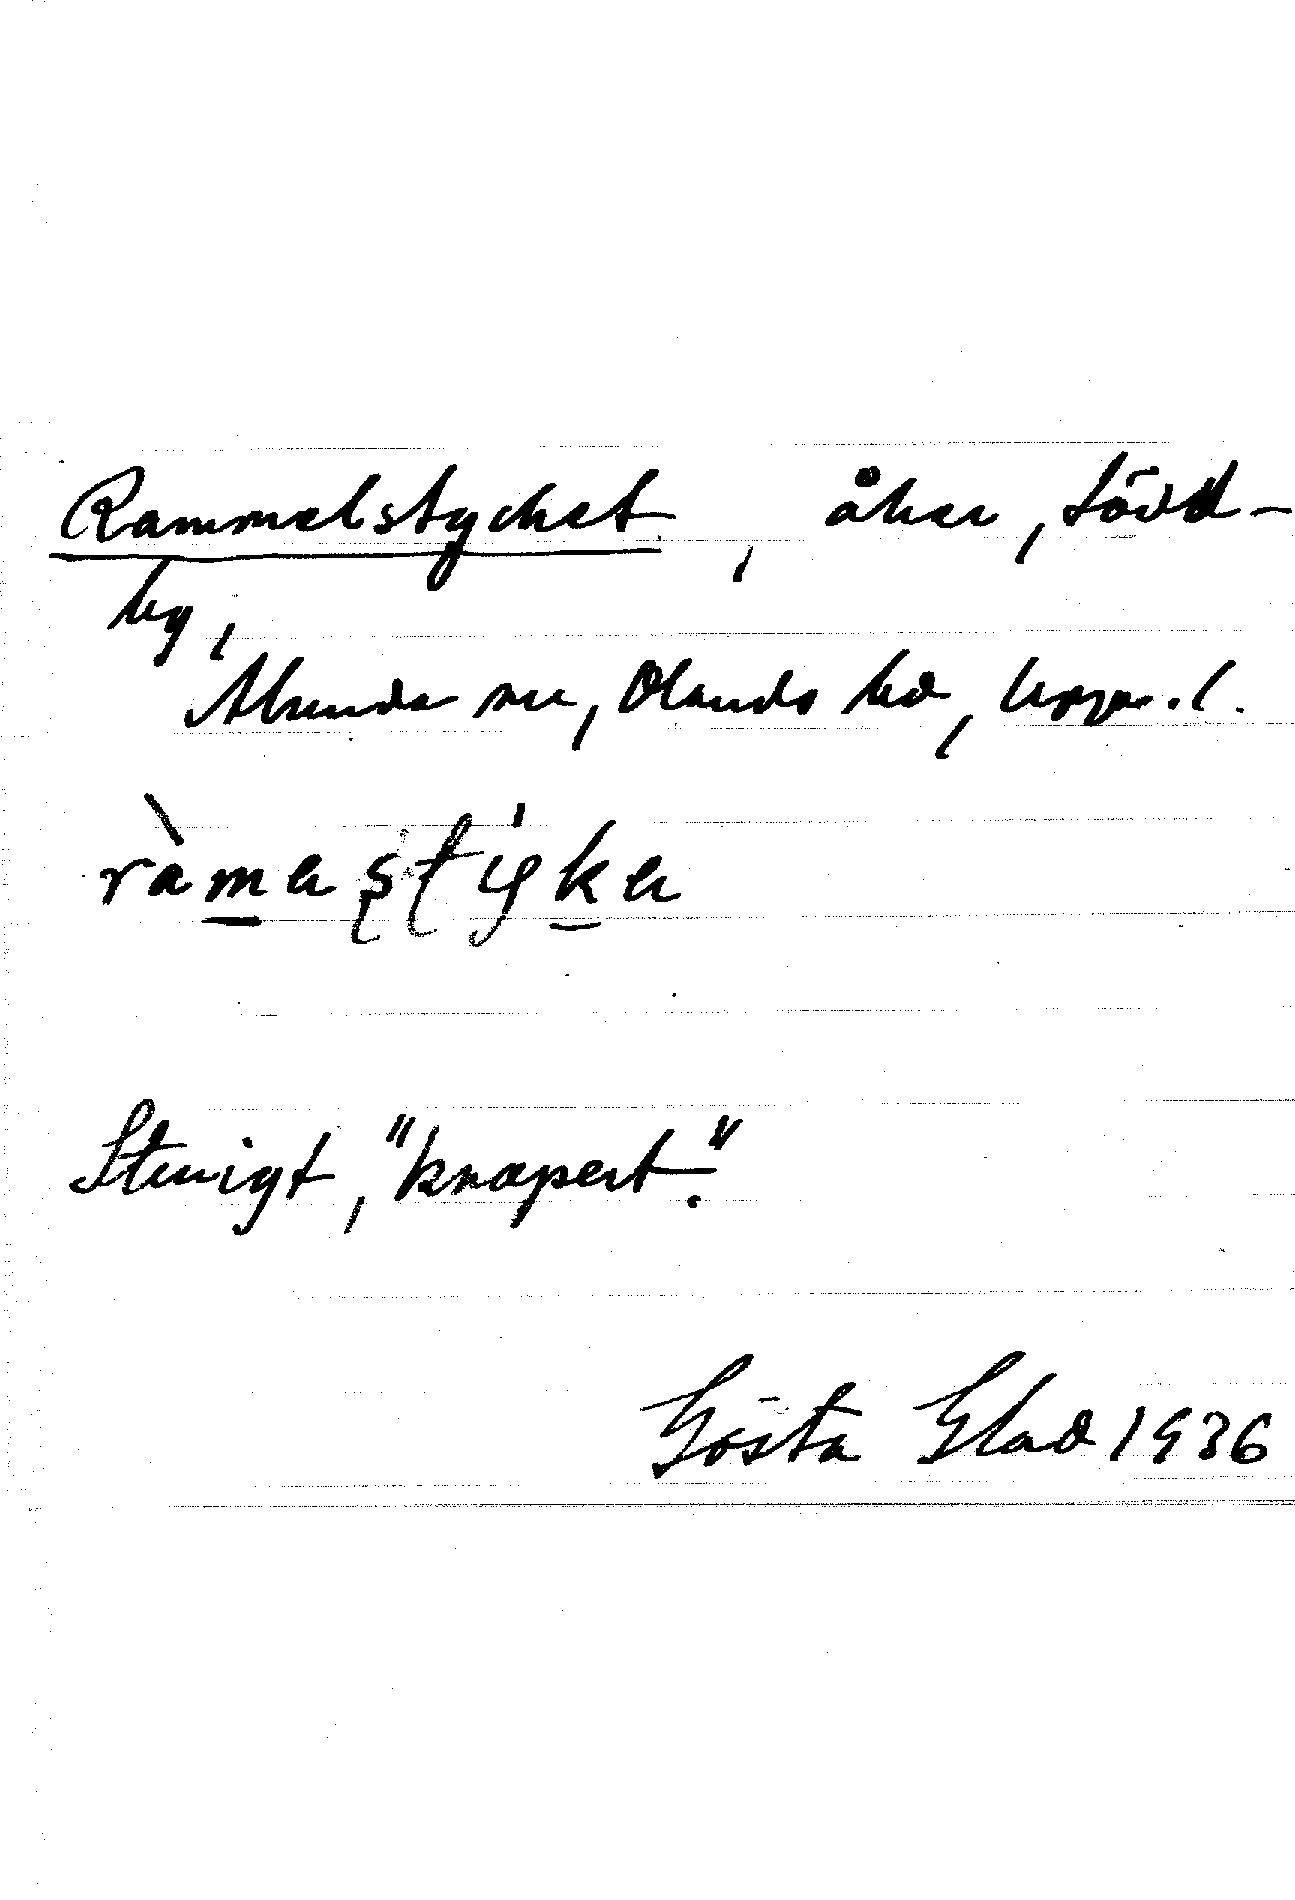 Rammelstycket, åker, Lövd-
by,
Alunda sn, Olands hd, Upps. l.
ràmaʂʈi̡ka
Stenigt, "knapert".
Gösta Glad 1936